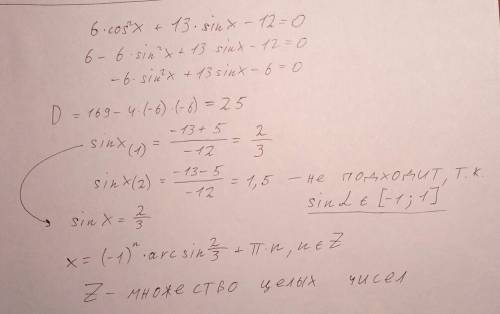 6·cos²x + 13·sinx − 12 = 0
6 − 6·sin²x + 13·sinx − 12 = 0
−6·sin²x + 13sinx − 6 = 0
D = 169 − 4·(−6)·(−6) = 25
sinx(1) = (−13+5)/(−12) = 2/3
sinx(2) = (−13−5)/(−12) = 1,5 — не подходит, т.к.
sinα ∈ [−1; 1]
sinx = 2/3
x = (−1)ⁿ·arcsin 2/3 + π·n, n ∈ Z
Z — множество целых чисел